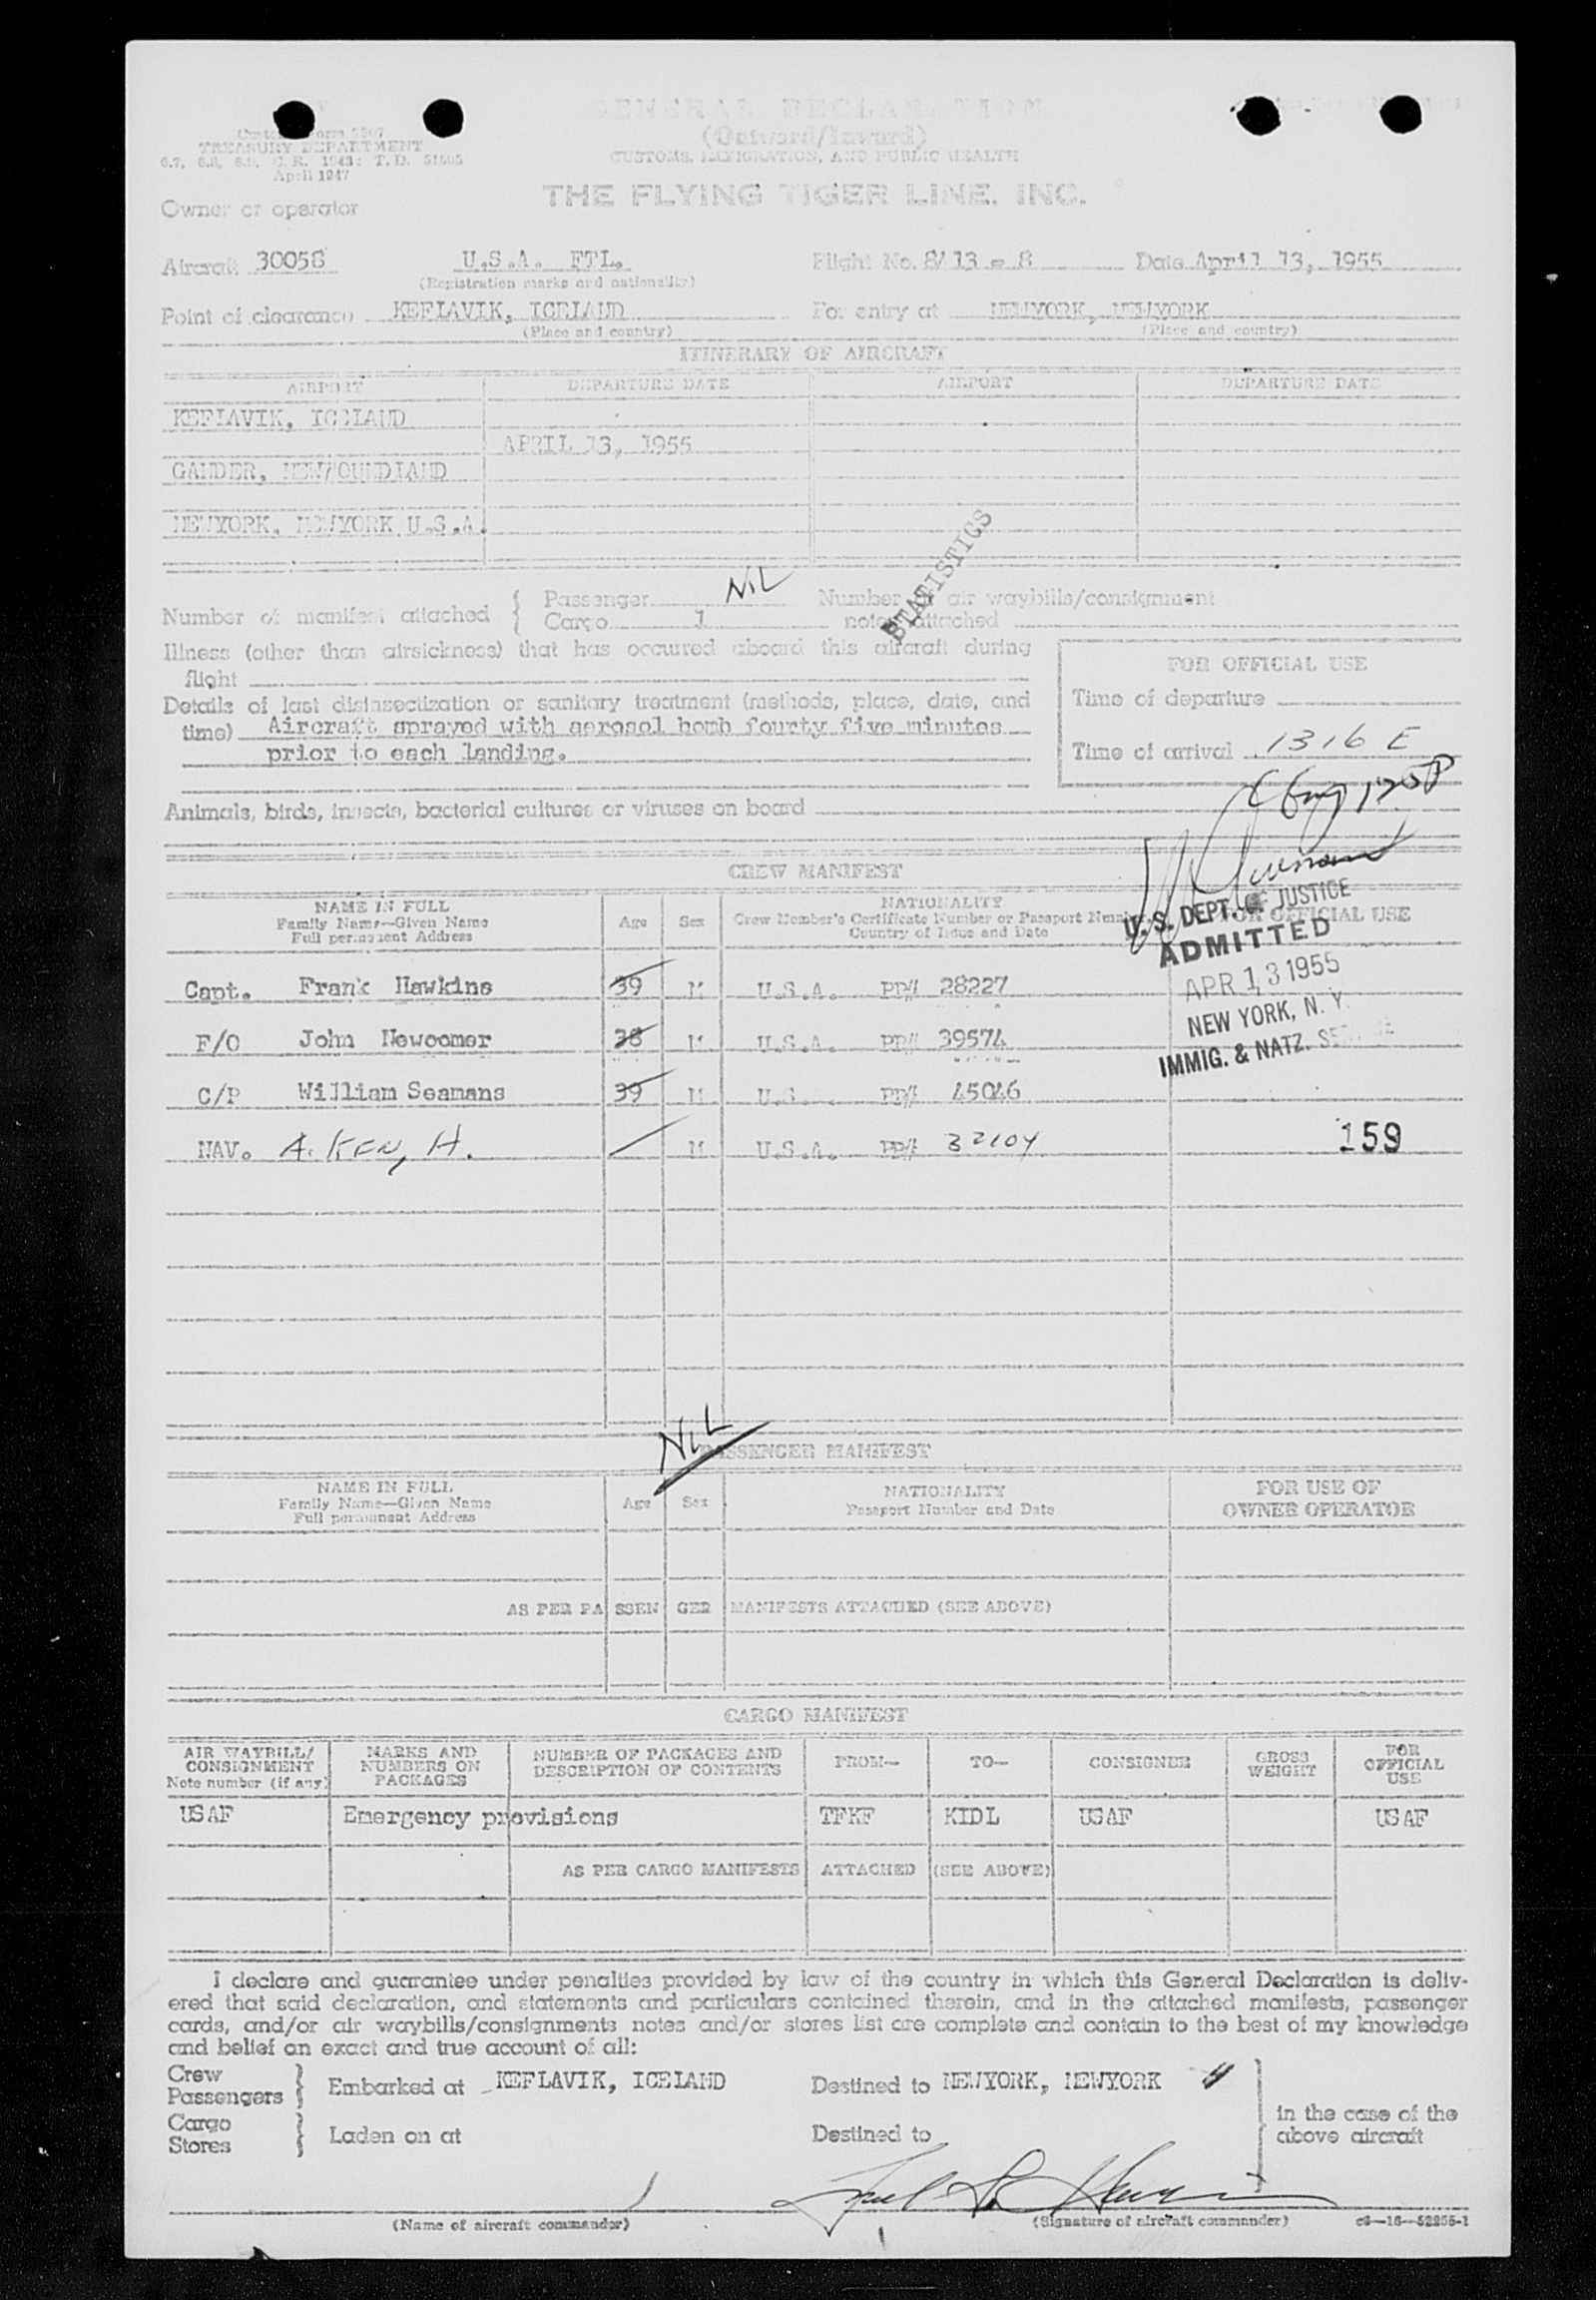 GENERAL DECLARATION
(Outward/Inward)
CUSTOMS, IMMIGRATION, AND PUBLIC HEALTH
TREASURY DEPARTMENT
April 1947
THE FLYING TIGER LINE, INC.
Owner or operator
Aircraft 30058 U.S.A. FTL. Flight No. 8/13-8 Date April 13, 1955
(Registration marks and nationality)
Point of clearance KEFLAVIK, ICELAND For entry at NEWYORK, NEWYORK
(Place and country) (Place and country)
ITINERARY OF AIRCRAFT
AIRPORT DEPARTURE DATE AIRPORT DEPARTURE DATE
KEFLAVIK, ICELAND
APRIL 13, 1955
GANDER, NEWFOUNDLAND
NEWYORK, NEWYORK U.S.A.
STATISTICS
Number of manifest attached { Passenger NiL Number of air waybills/consignment
Cargo 1 notes attached
Illness (other than airsickness) that has occured aboard this aircraft during
flight
FOR OFFICIAL USE
Details of last disinsectization or sanitary treatment (methods, place, date, and
Time of departure
time) Aircraft sprayed with aerosol bomb fourty five minutes
prior to each landing.
Time of arrival 1316 E
Animals, birds, insects, bacterial cultures or viruses on board
CREW MANIFEST
NAME IN FULL
Family Name—Given Name
Full permanent Address
Age Sex
NATIONALITY
Crew Member's Certificate Number or Passport Number,
Country of Issue and Date
FOR OFFICIAL USE
U.S. DEPT. OF JUSTICE
ADMITTED
APR 13 1955
NEW YORK, N. Y.
IMMIG. & NATZ. SERVICE
Capt. Frank Hawkins 39 M U.S.A. PP# 28227
F/O John Newcomer 38 M U.S.A. PP# 39574
C/P William Seamans 39 M U.S.A. PP# 45046
NAV. AiKEN, H. M U.S.A. PP# 32104
159
NiL
PASSENGER MANIFEST
NAME IN FULL
Family Name—Given Name
Full permanent Address
Age Sex
NATIONALITY
Passport Number and Date
FOR USE OF
OWNER OPERATOR
AS PER PASSENGER MANIFESTS ATTACHED (SEE ABOVE)
CARGO MANIFEST
AIR WAYBILL/
CONSIGNMENT
Note number (if any)
MARKS AND
NUMBERS ON
PACKAGES
NUMBER OF PACKAGES AND
DESCRIPTION OF CONTENTS
FROM—
TO—
CONSIGNEE
GROSS
WEIGHT
FOR
OFFICIAL
USE
USAF Emergency provisions TFKF KIDL USAF USAF
AS PER CARGO MANIFESTS ATTACHED (SEE ABOVE)
I declare and guarantee under penalties provided by law of the country in which this General Declaration is deliv-
ered that said declaration, and statements and particulars contained therein, and in the attached manifests, passenger
cards, and/or air waybills/consignments notes and/or stores list are complete and contain to the best of my knowledge
and belief an exact and true account of all:
Crew
Passengers } Embarked at KEFLAVIK, ICELAND Destined to NEWYORK, NEWYORK
Cargo
Stores } Laden on at Destined to
in the case of the
above aircraft
(Name of aircraft commander) (Signature of aircraft commander) c3—16—52255-1